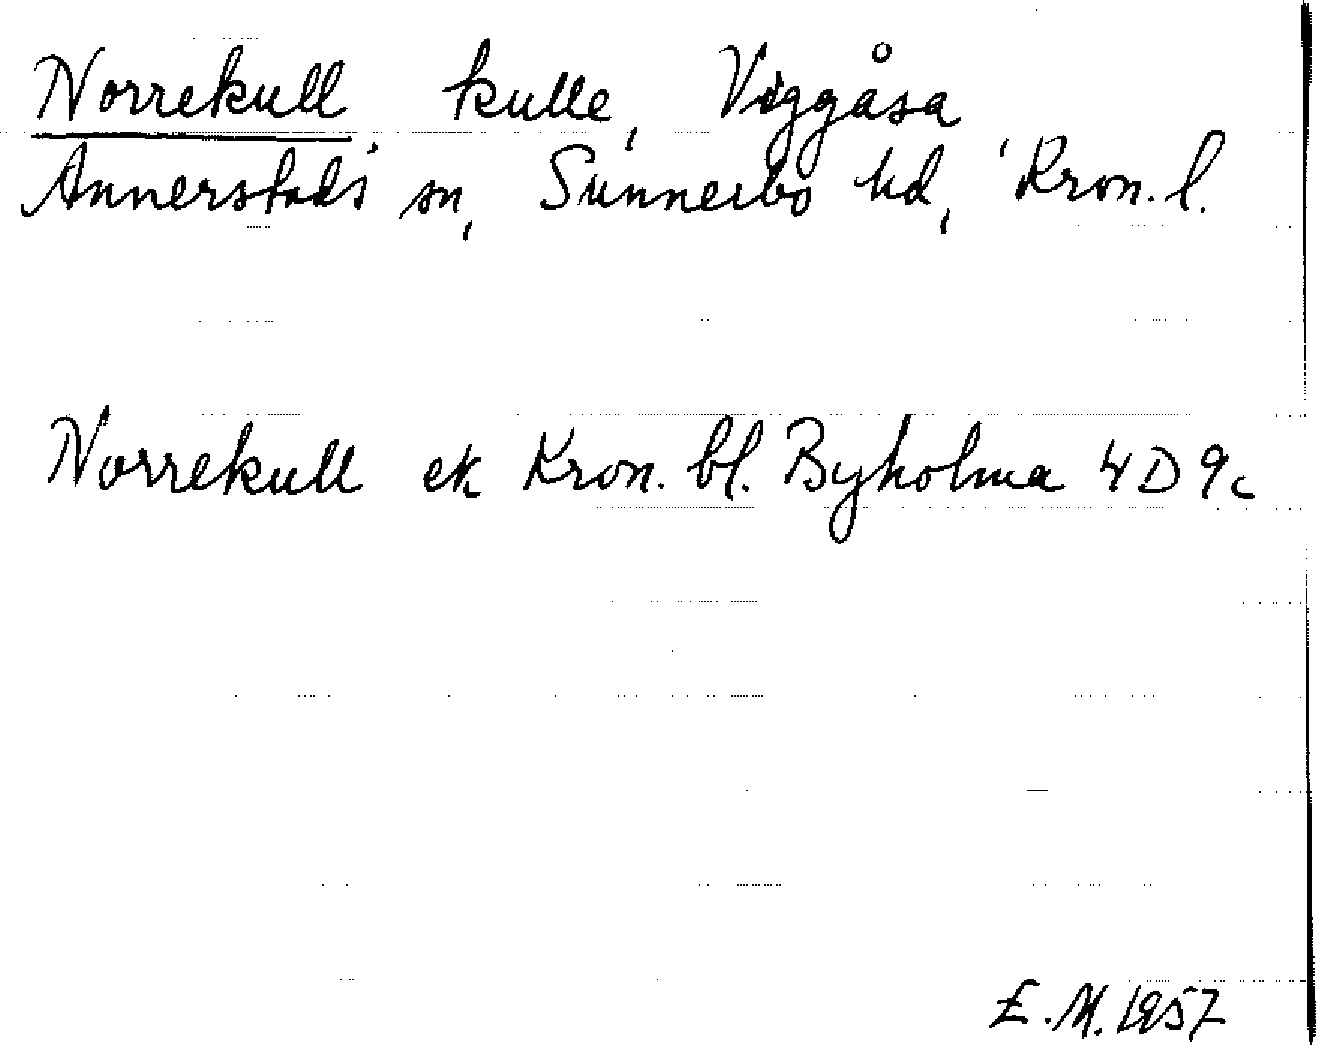 Norrekull kulle, Viggåsa
Annerstads sn, Sunnerbo hd, Kron. l.
Norrekull ek Kron. bl. Byholma 4 D 9c
E. M. 1957